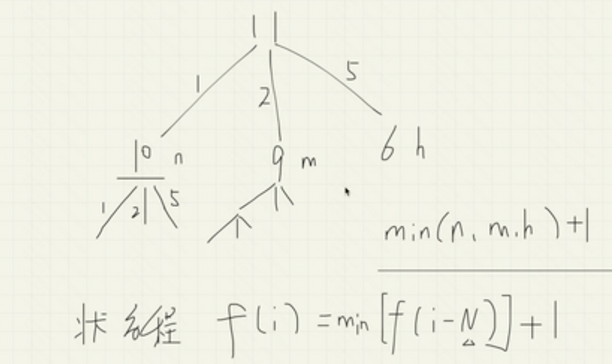 11
1 2 5
10 n 9 m 6 h
1 2 5
min(n, m, h)+1
状 方程 f(i) = min[f(i-N)]+1